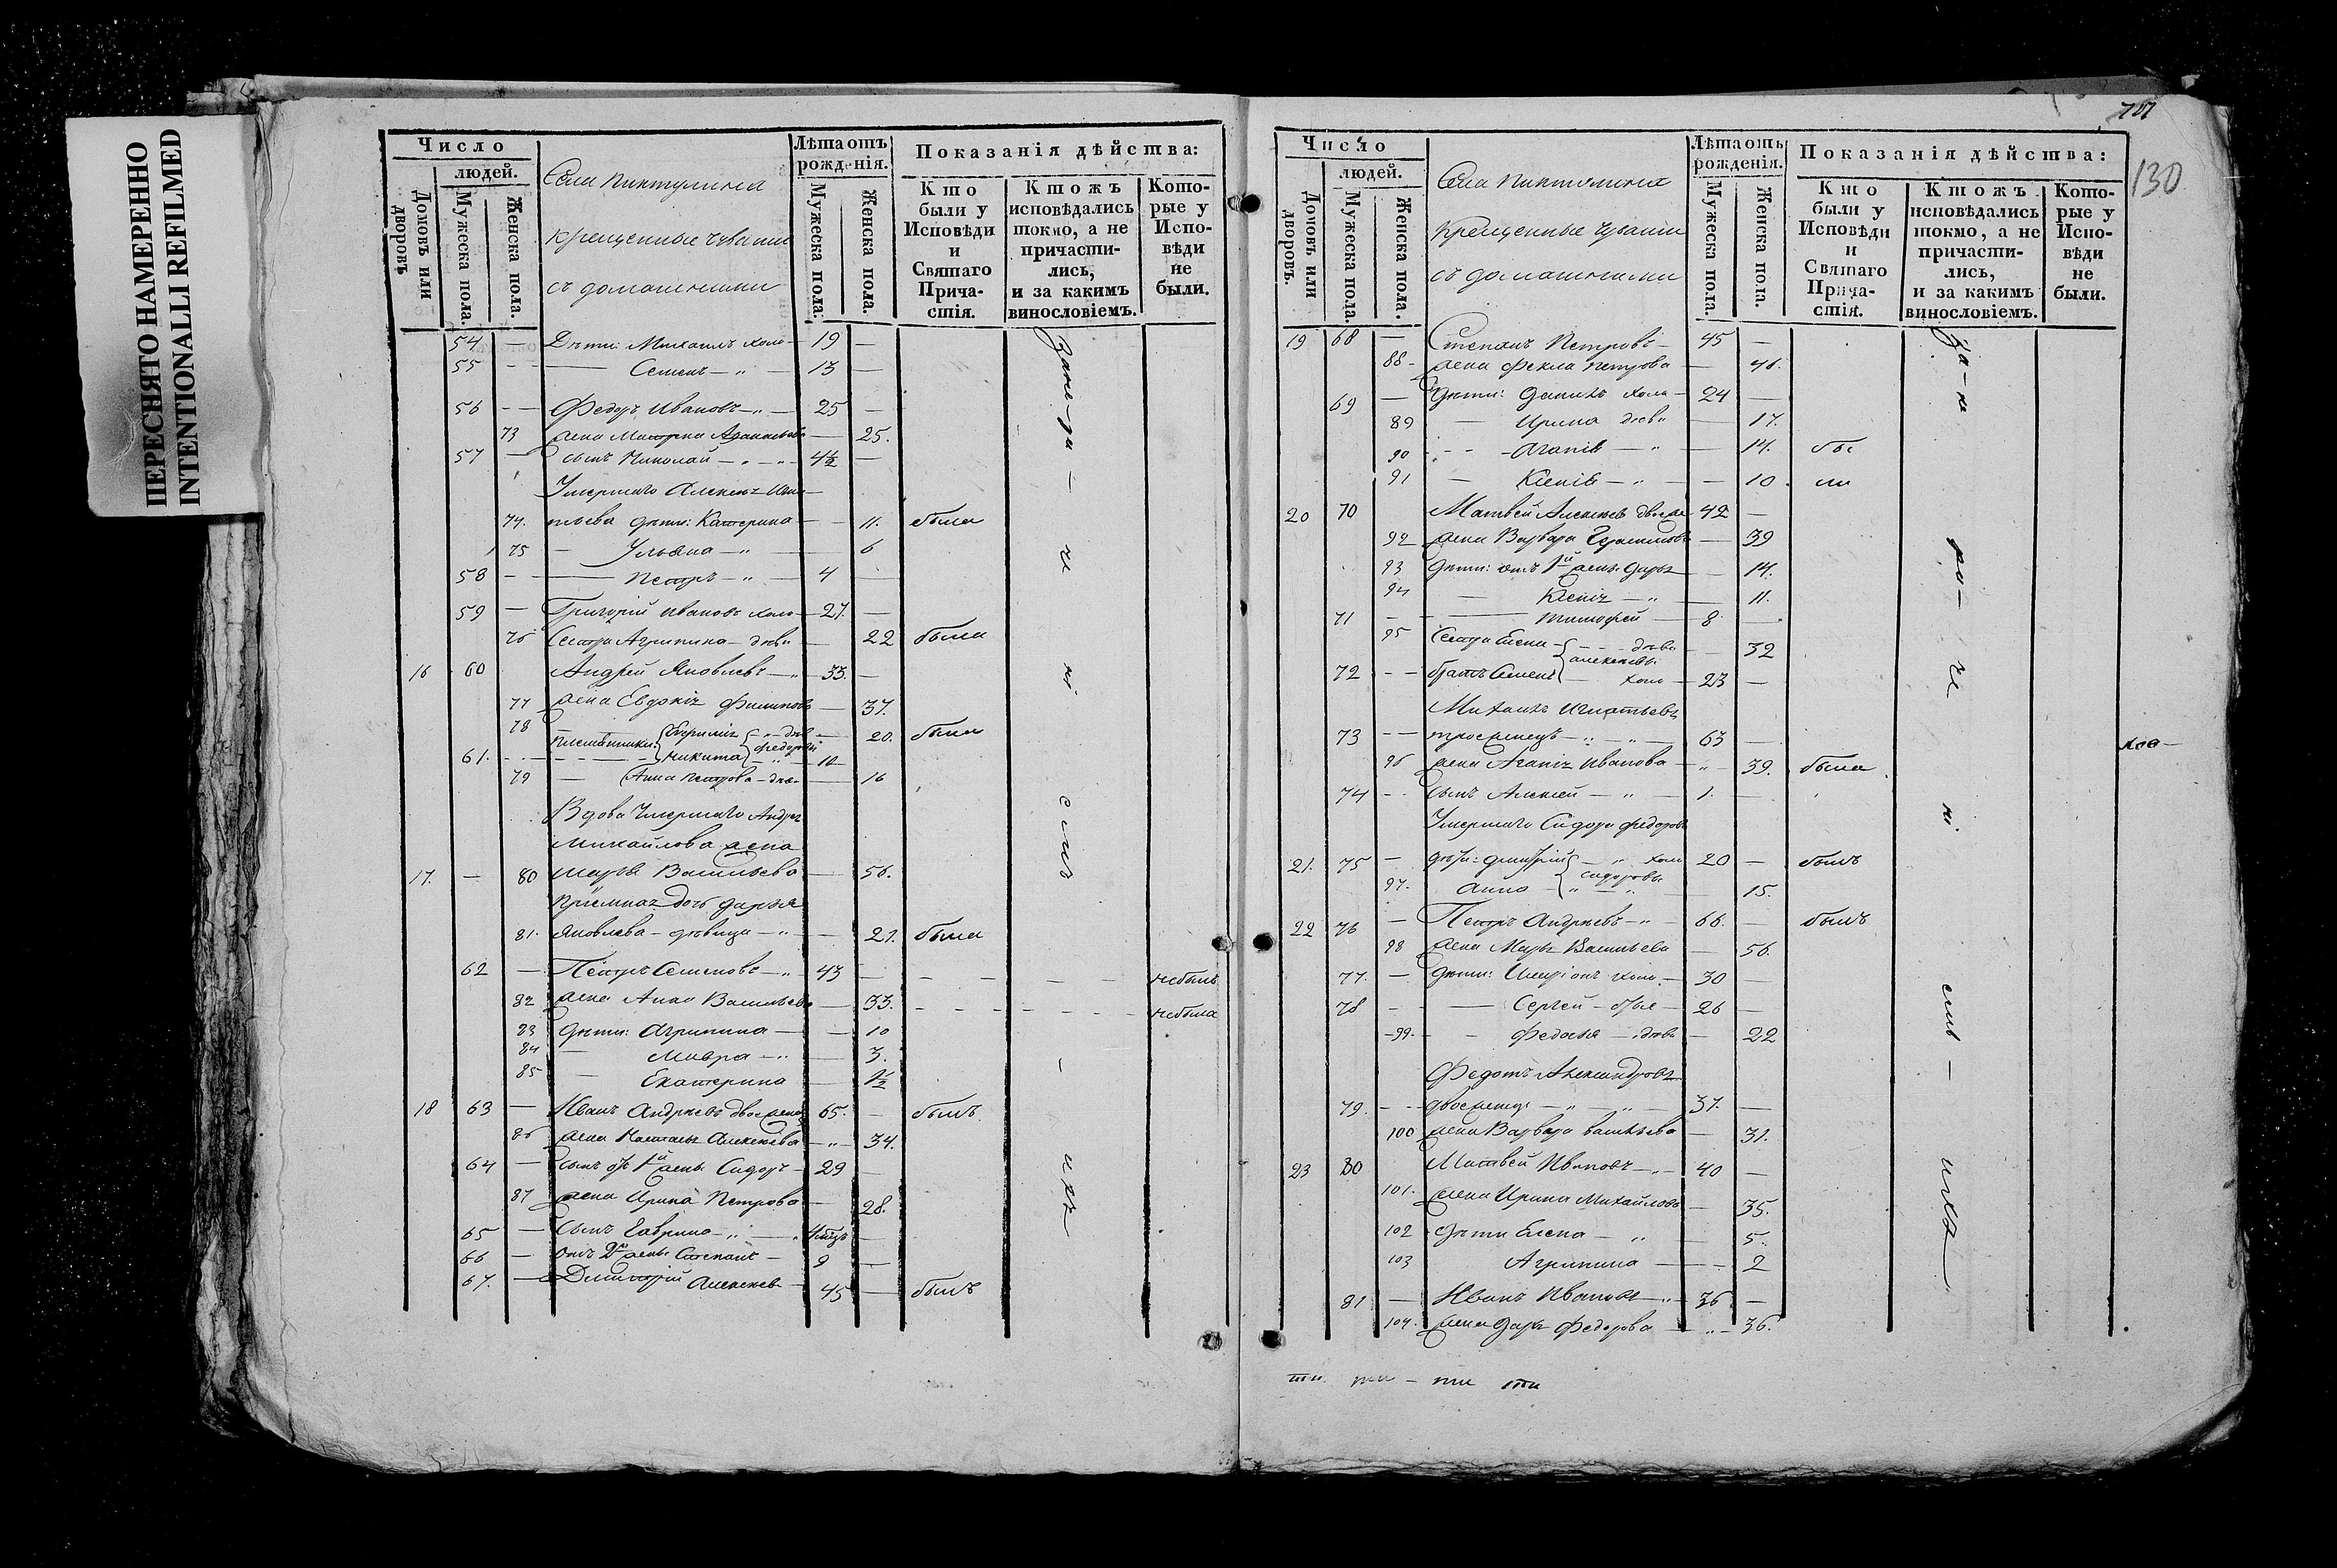 ПЕРЕСНЯТО НАМЕРЕННО
INTENTIONALLI REFILMED
Число
людей.
Домовъ или дворовъ
Мужеска пола.
Женска пола.
Села Пиктулина
крещенные чуваши
съ домашними
Лѣта отъ рожденія.
Мужеска пола.
Женска пола.
Показанія дѣйства:
Кто были у Исповѣди и Святаго Причастія.
Ктожъ исповѣдались токмо, а не причастились, и за какимъ винословіемъ.
Которые у Исповѣди не были.
54 — Дѣти: Михаилъ холо — 19 —
55 — — Семенъ — „ — 13 —
56 — — Федоръ Ивановъ — „ — 25 —
73 жена Матрена — 25.
57 — сынъ Николай — „ — „ 4½ —
Умершаго Алексея
74. дѣти: Катерина — 11. была
75 — Ульяна — „ — 6
58 — — Петръ — „ — 4
59 — Григорій Ивановъ холо — 27. —
76 Сестра Агрипина — дѣв — 22 была
16 60 Андрей Яковлевъ — „ 33. —
77 жена Евдокія Филипов — 37.
78 племянники: — „ — дѣв — 20. была
61. — Никита Федоровы — „ — 10
79 — Анна Петрова — дѣв — 16
Вдова умершаго Андрея
Михайлова жена
17. — 80 Марья Васильева — 56.
Пріемная дочь Дарья
81. Яковлева — дѣвица — „ — 21. была
62 — Петръ Семеновъ — „ 43 — — — — — небылъ
82 жена Анна Васильева — 33. — — — — небыла
83 Дѣти: Агрипина — — 10
84 — Мавра — „ — 3.
85 — Екатерина — 1½
18 63 — Иванъ Андреевъ двоежене 65. — былъ
86 жена Настасья Алексѣева — „ — 34.
64 — сынъ отъ 1й жены Сидоръ — 29 —
87 жена Ирина Петрова — 28.
65 — Сынъ Гаврила — „ —
66 — Отъ 2й жены Степанъ — 9 —
67. — Димитрій Алексѣев — 45 — былъ
130
Число
людей.
Домовъ или дворовъ.
Мужеска пола.
Женска пола.
Села Пиктулина
крещенные чуваши
съ домашними
Лѣта отъ рожденія.
Мужеска пола.
Женска пола.
Показанія дѣйства:
Кто были у Исповѣди и Святаго Причастія.
Ктожъ исповѣдались токмо, а не причастились, и за какимъ винословіемъ.
Которые у Исповѣди не были.
19 68 — Степанъ Петровъ — 45 —
88 — жена Фекла Петрова — 46.
69 — Дѣти: Данилъ холо — 24 —
89 — Ирина дѣв — 17.
90 — — Агапія — „ — 14. бы
91 — Ксенія — „ — — 10. ли
20 70 Матвей Алексѣев двоеже 42 —
92 жена Варвара Герасимов — 39
93 Дѣти: отъ 1й жены Дарья — 14.
94 — Ксенія — „ — 11.
71 — — Тимофей — 8 —
95 Сестра Елена — — — дѣв — 32
Алексѣевы
72 — — братъ Семенъ — холо — 23 —
Михаилъ Игнатьевъ
73 — — троеженецъ — „ — „ — 63 —
96 жена Агапія Иванова — „ — 39. была
74 — сынъ Алексѣй — „ — 1. —
Умершаго Сидора Федоров
21. 75 — дѣти: Димитрій — „ холо 20 — былъ
Сидоровы
97. Анна — „ — „ — 15.
22 76 — Петръ Андреевъ — „ — 66. — былъ
98 жена Марья Васильева — 56.
77. — Дѣти: холо. — 30 —
78 — — Сергей — 26 —
99 — Федосья — дѣв — 22
Федотъ Александровъ
79. — — двоеженецъ — „ — „ — 37. —
100 жена Варвара Васильева — 31.
23 80 Матвей Ивановъ — „ — 40 —
101. жена Ирина Михайлова — 35.
102 Дѣти Елена — „ — 5.
103 Агрипина — — 2
81 — Иванъ Ивановъ — „ — 36 —
104. жена Дарья Федорова — „ — 36.